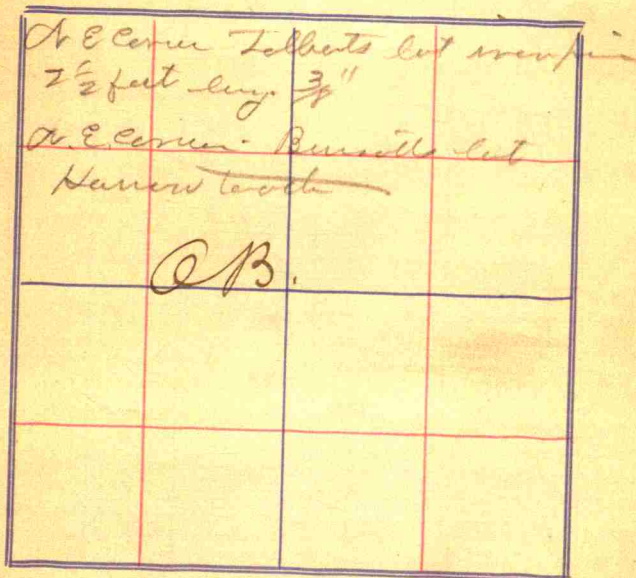 N E Corner Tolberts lot iron pin
2 1/2 feet long 3/8"
N.E. Corner Burnetts lot
Harrow tooth
OB.